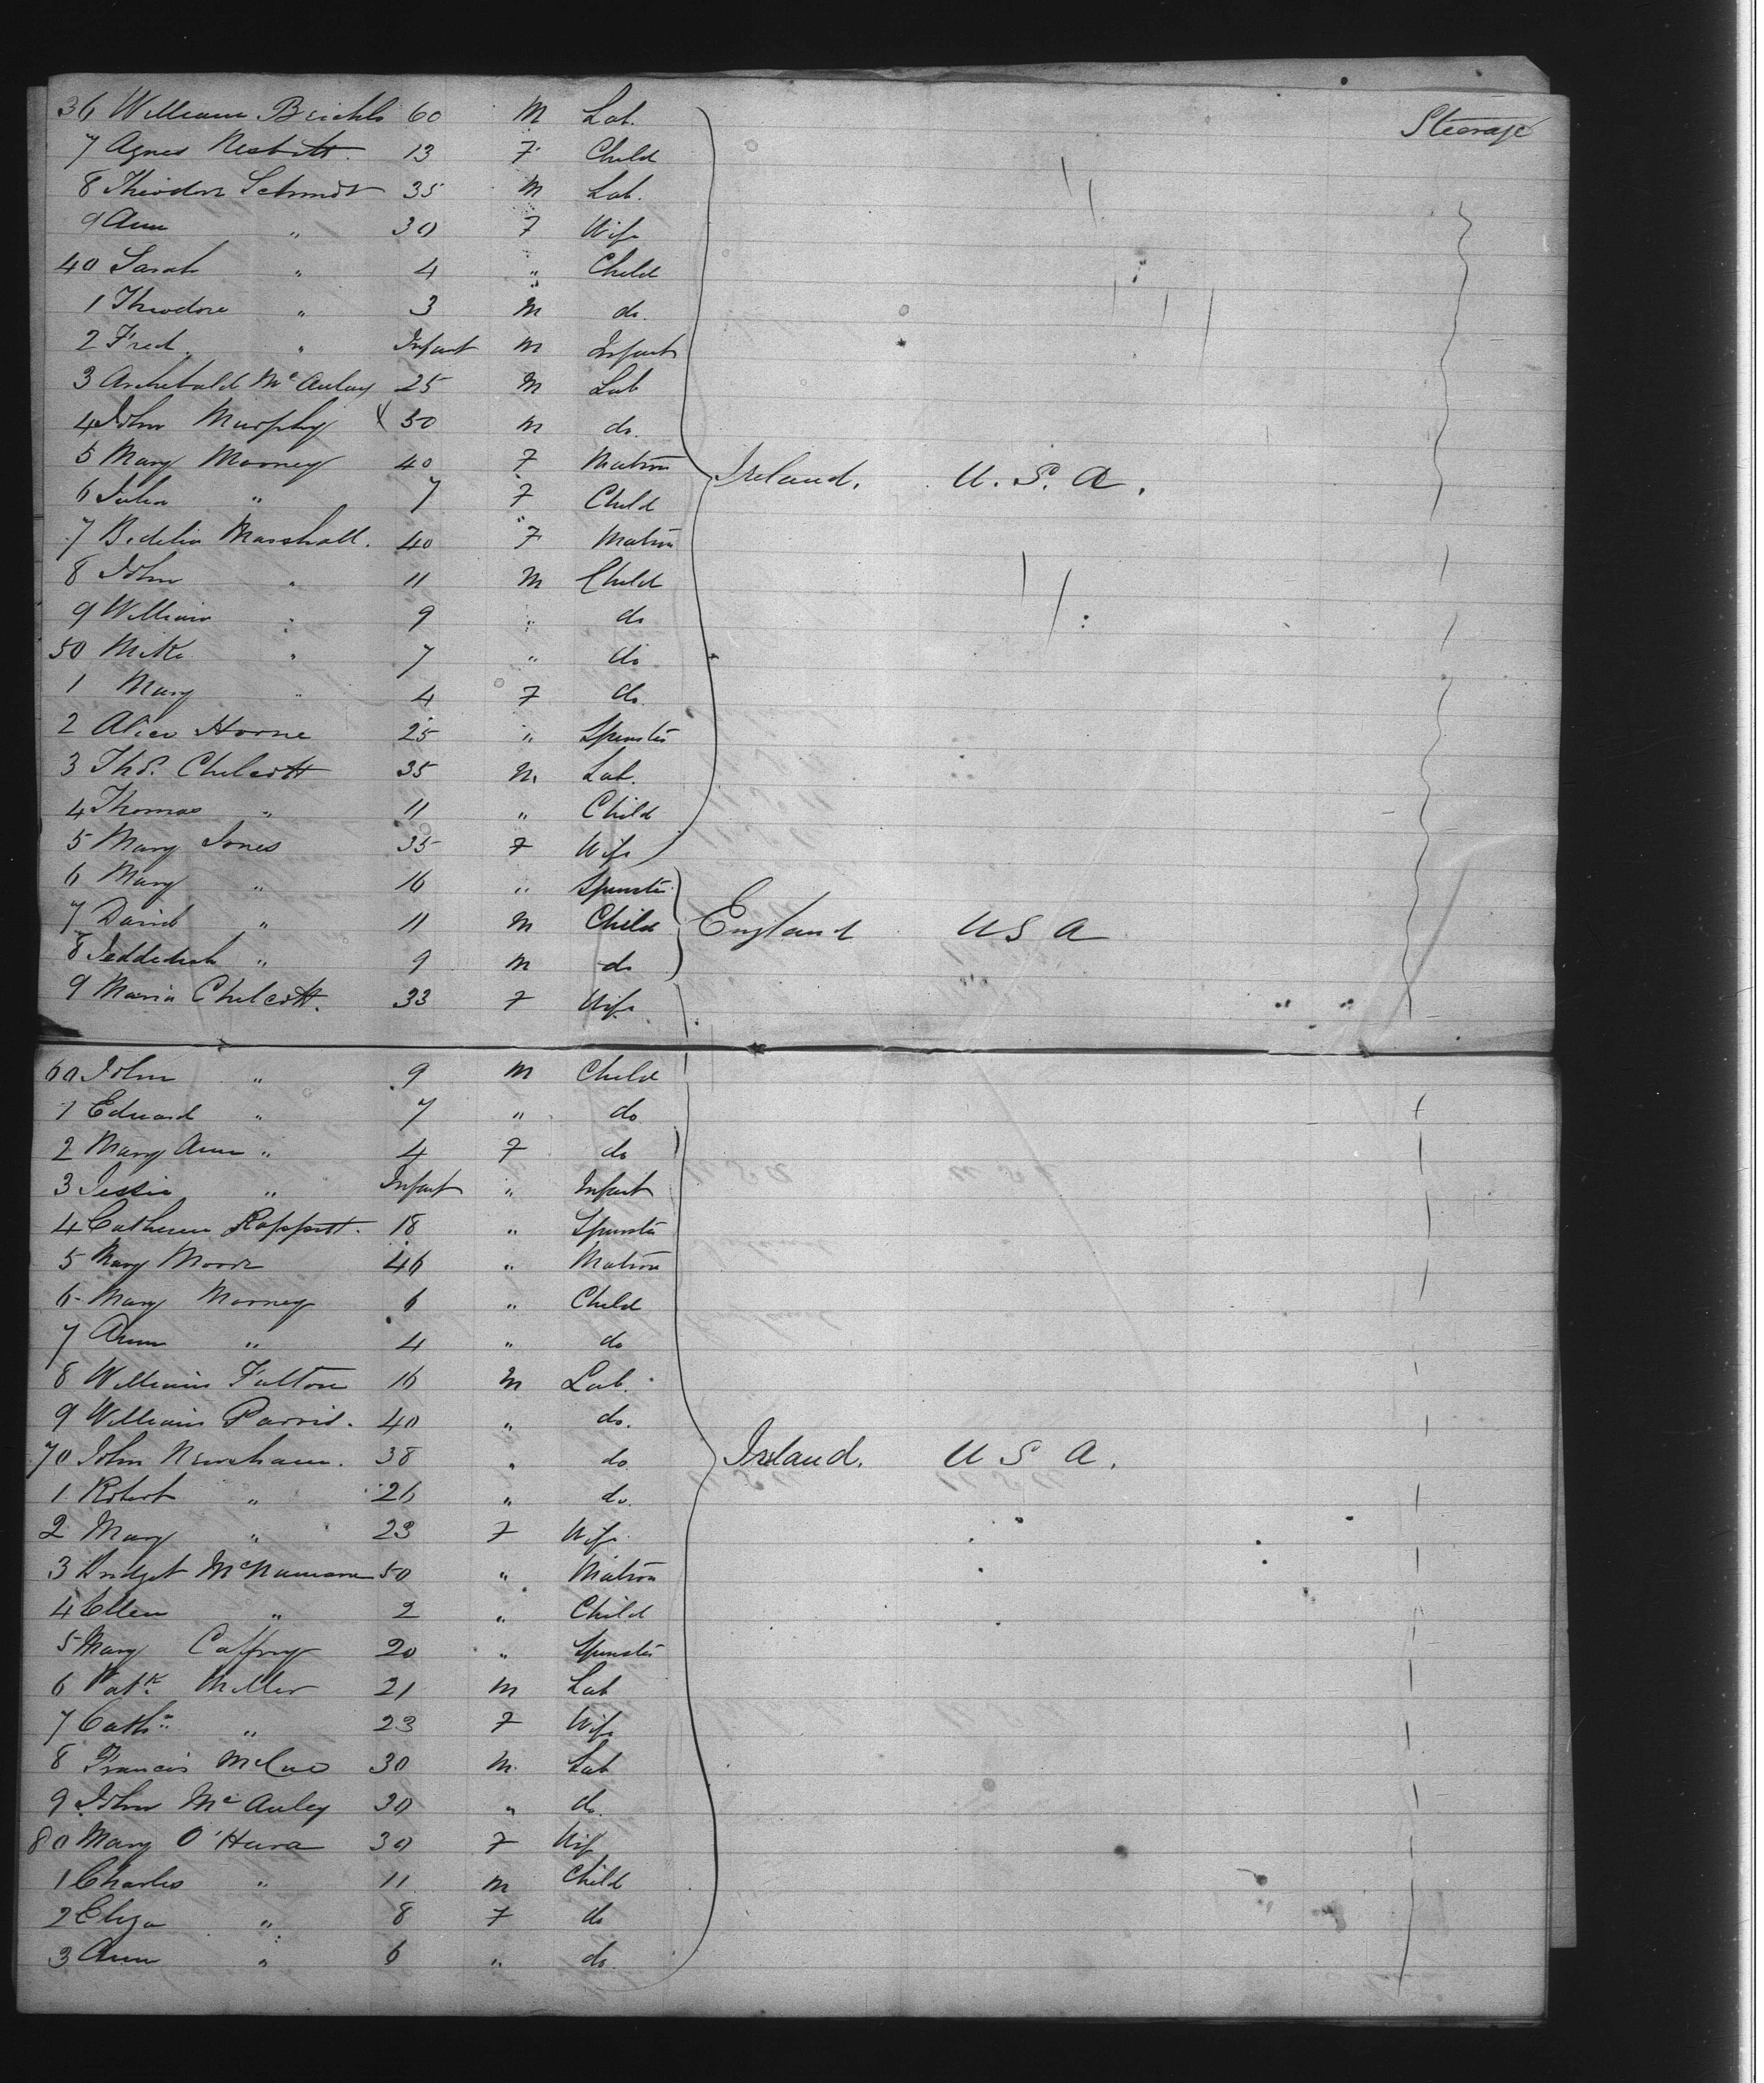 36 William 60 M Lab. Steerage
7 Agnes Nesbitt. 13 F Child
8 Theodore Schmidt 35 M Lab.
9 Ann " 30 F Wife
40 Sarah " 4 " Child
1 Theodore " 3 M do.
2 Fred. " Infant M Infant
3 Archibald McAulay 25 M Lab
4 John Murphy 30 M do.
5 Mary Mooney 40 F Matron Ireland. U. S. A.
6 Julia " 7 F Child
7 Bidelia Marshall. 40 F Matron
8 John " 11 M Child
9 William " 9 " do
50 Mike " 7 " do
1 Mary " 4 F do.
2 Alice Horne 25 " Spinster
3 Thos. Chilcott 35 M. Lab.
4 Thomas " 11 " Child
5 Mary Jones 35 F Wife
6 Mary " 16 " Spinster
7 David " 11 M Child England U S A
8 Jeddediah " 9 M do
9 Maria Chilcott. 33 F Wife
60 John " 9 M Child
1 Edward " 7 " do
2 Mary Ann " 4 F do
3 Jessie " Infant " Infant
4 Catherine 18 " Spinster
5 Mary Moore 46 " Matron
6 Mary Mooney 6 " Child
7 Ann " 4 " do
8 William Fulton 16 M Lab.
9 William Parris. 40 " do.
70 John Newsham. 38 " do Ireland. U S A.
1 Robert " 26 " do.
2 Mary " 23 F Wife
3 Bridget McNamara 50 " Matron
4 Ellen " 2 " Child
5 Mary Caffrey 20 " Spinster
6 Patk. Miller 21 M Lab
7 Cathn. " 23 F Wife
8 Francis McCue 30 M. Lab
9 John McAuley 30 " do.
80 Mary O'Hara 30 F Wif
1 Charles " 11 M Child
2 Eliza " 8 F do
3 Ann " 6 " do.